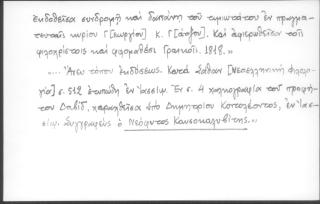 ἐκδοθεῖσα συνδρομῇ καὶ δαπάνῃ τοῦ τιμιωτάτου ἐν πραγμα-
τευταῖς κυρίου Γ[εωργίου] Κ. Γ[άτσου]. Καὶ ἀφιερωθεῖσα τοῖς
φιλοχρίστοις καὶ φιλομαθέσι Γραικοῖς. 1818.»
«... Ἄνευ τόπου ἐκδόσεως. Κατὰ Σάθαν [Νεοελληνικὴ Φιλολο-
γία] σ. 512 ἐτυπώθη ἐν Ἰασίῳ. Ἐν σ. 4 χαλκογραφία τοῦ προφή-
του Δαβίδ, χαραχθεῖσα ὑπὸ Δημητρίου Κοντολέοντος, ἐν Ἰασ-
σίῳ. Συγγραφεὺς ὁ Νεόφυτος Καυσοκαλυβίτης.»